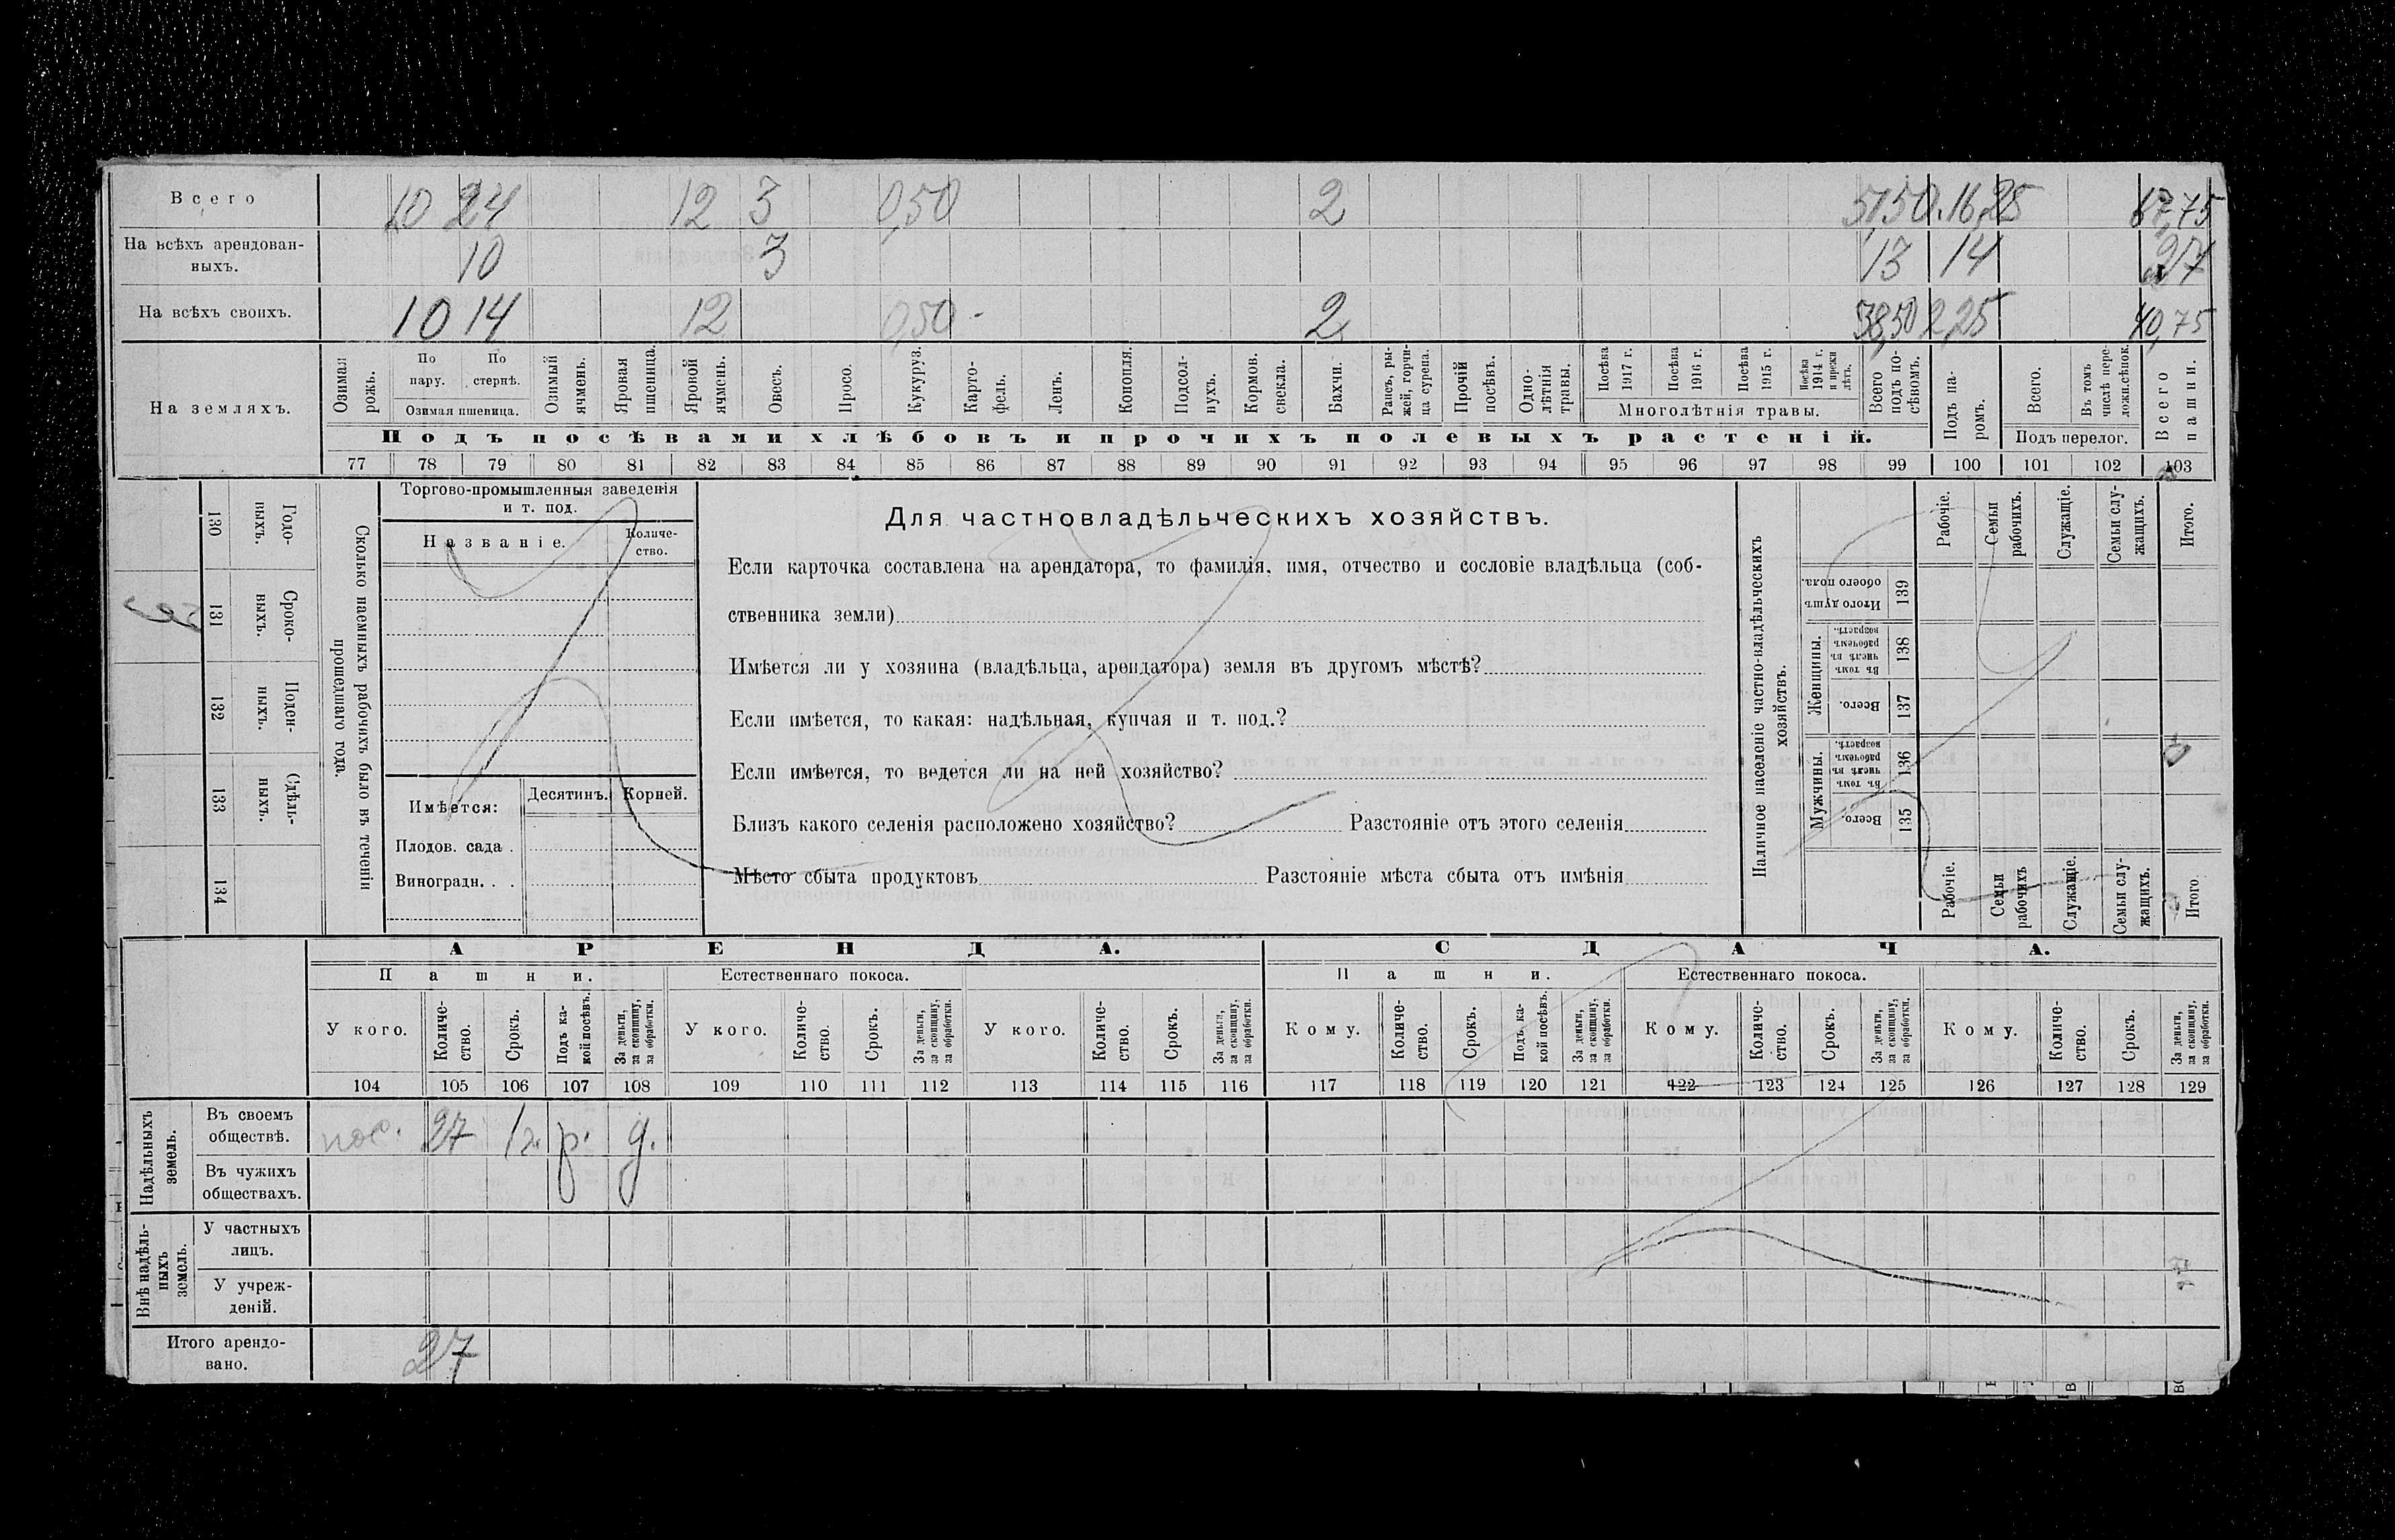 Всего 10 24 12 3 0,50 2 51,50 16,25 67,75
На всѣхъ арендован-
ныхъ. 10 3 13 14 27
На всѣхъ своихъ. 10 14 12 0,50 - 2 38,50 2,25 40,75
На земляхъ.
Озимая рожь.
По пару.
По стернѣ.
Озимая пшеница.
Озимый ячмень.
Яровая пшеница.
Яровой ячмень.
Овесъ.
Просо.
Кукуруз.
Карто-
фель.
Ленъ.
Конопля.
Подсол-
нухъ.
Кормов.
свекла.
Бахчи.
Рапсъ, ры-
жей, горчи-
ца сурепа.
Прочій
посѣвъ.
Одно-
лѣтнія
травы.
Посѣва
1917 г.
Посѣва
1916 г.
Посѣва
1915 г.
Посѣва
1914 г.
и прежн
лѣтъ.
Многолѣтнія травы.
Всего
подъ по-
сѣвомъ.
Подъ па-
ромъ.
Всего.
Въ томъ
числѣ пере-
ложн.сѣнок.
Подъ перелог.
Всего
пашни.
Подъ посѣвами хлѣбовъ и прочихъ полевыхъ растеній.
77 78 79 80 81 82 83 84 85 86 87 88 89 90 91 92 93 94 95 96 97 98 99 100 101 102 103
130 Годо-
выхъ.
131 Сроко-
выхъ.
132 Поден-
ныхъ.
133 Сдѣль-
ныхъ.
134
Сколько наемныхъ рабочихъ было въ теченіи
прошедшаго года.
Торгово-промышленныя заведенія
и т. под.
Названіе.
Количе-
ство.
Имѣется:
Десятинъ.
Корней.
Плодов. сада .
Виноградн. . .
Для частновладѣльческихъ хозяйствъ.
Если карточка составлена на арендатора, то фамилія, имя, отчество и сословіе владѣльца (соб-
ственника земли)
Имѣется ли у хозяина (владѣльца, арендатора) земля въ другомъ мѣстѣ?
Если имѣется, то какая: надѣльная, купчая и т. под.?
Если имѣется, то ведется ли на ней хозяйство?
Близъ какого селенія расположено хозяйство? Разстояніе отъ этого селенія
Мѣсто сбыта продуктовъ Разстояніе мѣста сбыта отъ имѣнія
Наличное населеніе частно-владѣльческихъ
хозяйствъ.
Рабочіе.
Семьи
рабочихъ.
Служащіе.
Семьи слу-
жащихъ.
Итого.
Итого душъ
обоего пола.
139
Женщины.
Въ томъ
числѣ въ
рабочемъ
возрастѣ.
138
Всего.
137
Мужчины.
Въ томъ
числѣ въ
рабочемъ
возрастѣ.
136
Всего.
135
Рабочіе.
Семьи
рабочихъ
Служащіе.
Семьи слу-
жащихъ.
Итого.
АРЕНДА. СДАЧА.
Пашни. Естественнаго покоса. Пашни. Естественнаго покоса.
У кого.
Количе-
ство.
Срокъ.
Подъ ка-
кой посѣвъ.
За деньги,
за скопщину,
за обработки.
У кого.
Количе-
ство.
Срокъ.
За деньги,
за скопщину,
за обработки.
У кого.
Количе-
ство.
Срокъ.
За деньги,
за скопщину,
за обработки.
Кому.
Количе-
ство.
Срокъ.
Подъ ка-
кой посѣвъ.
За деньги,
за скопщину,
за обработки.
Кому.
Количе-
ство.
Срокъ.
За деньги,
за скопщину,
за обработки.
Кому.
Количе-
ство.
Срокъ.
За деньги,
за скопщину,
за обработки.
104 105 106 107 108 109 110 111 112 113 114 115 116 117 118 119 120 121 122 123 124 125 126 127 128 129
Надѣльныхъ
земель.
Въ своемъ
обществѣ. пос. 27 1 г. р. д.
Въ чужихъ
обществахъ.
Внѣ надѣль-
ныхъ
земель.
У частныхъ
лицъ.
У учреж-
деній.
Итого арендо-
вано. 27